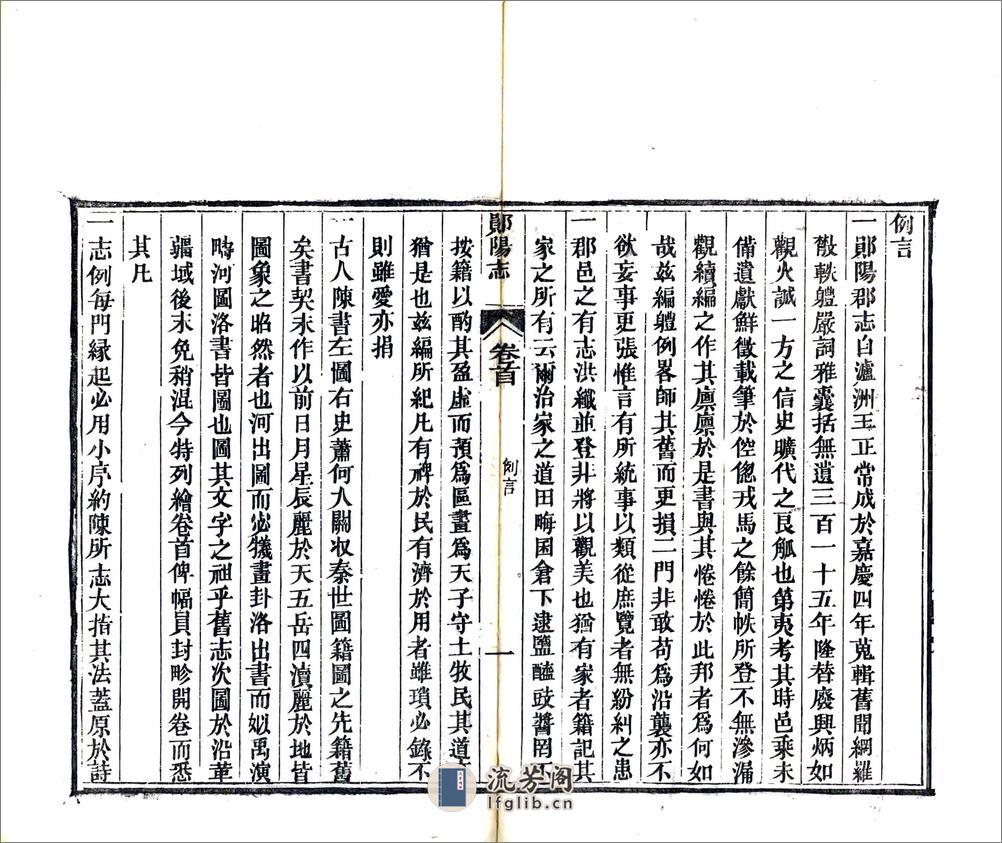 例言
一鄖陽郡志自瀘洲王正常成於嘉慶四年蒐輯舊聞網羅
散軼軆嚴詞雅囊括無遺三百一十五年隆替廢興炳如
觀火誠一方之信史曠代之良觚也第夷考其時邑乘未
備遺獻鮮徵載筆於倥傯戎馬之餘簡帙所登不無滲漏
觀續編之作其廪廪於是書與其惓惓於此邦者爲何如
哉兹編軆例畧師其舊而更損一門非敢苟爲沿襲亦不
欲妄事更張惟言有所統事以類從庶覽者無紛糾之患
一郡邑之有志洪纖並登非將以觀美也猶有家者籍記其
家之所有云爾治家之道田畮囷倉下逮鹽醯豉醬罔
鄖陽志
卷首
例言
一
按籍以酌其盈虛而預爲區畫爲天子守土牧民其道
猶是也兹編所紀凡有裨於民有濟於用者雖瑣必錄不
則雖愛亦捐
一古人陳書左圖右史蕭何入關收秦世圖籍圖之先籍舊
矣書契未作以前日月星辰麗於天五岳四瀆麗於地皆
圖象之昭然者也河出圖而宓犧畫卦洛出書而姒禹演
疇河圖洛書皆圖也圖其文字之祖乎舊志次圖於沿革
疆域後未免稍混今特列繪卷首俾幅員封畛開卷而悉
其凡
一志例每門縁起必用小序約陳所志大指其法蓋原於詩
流芳阁
lfglib.cn